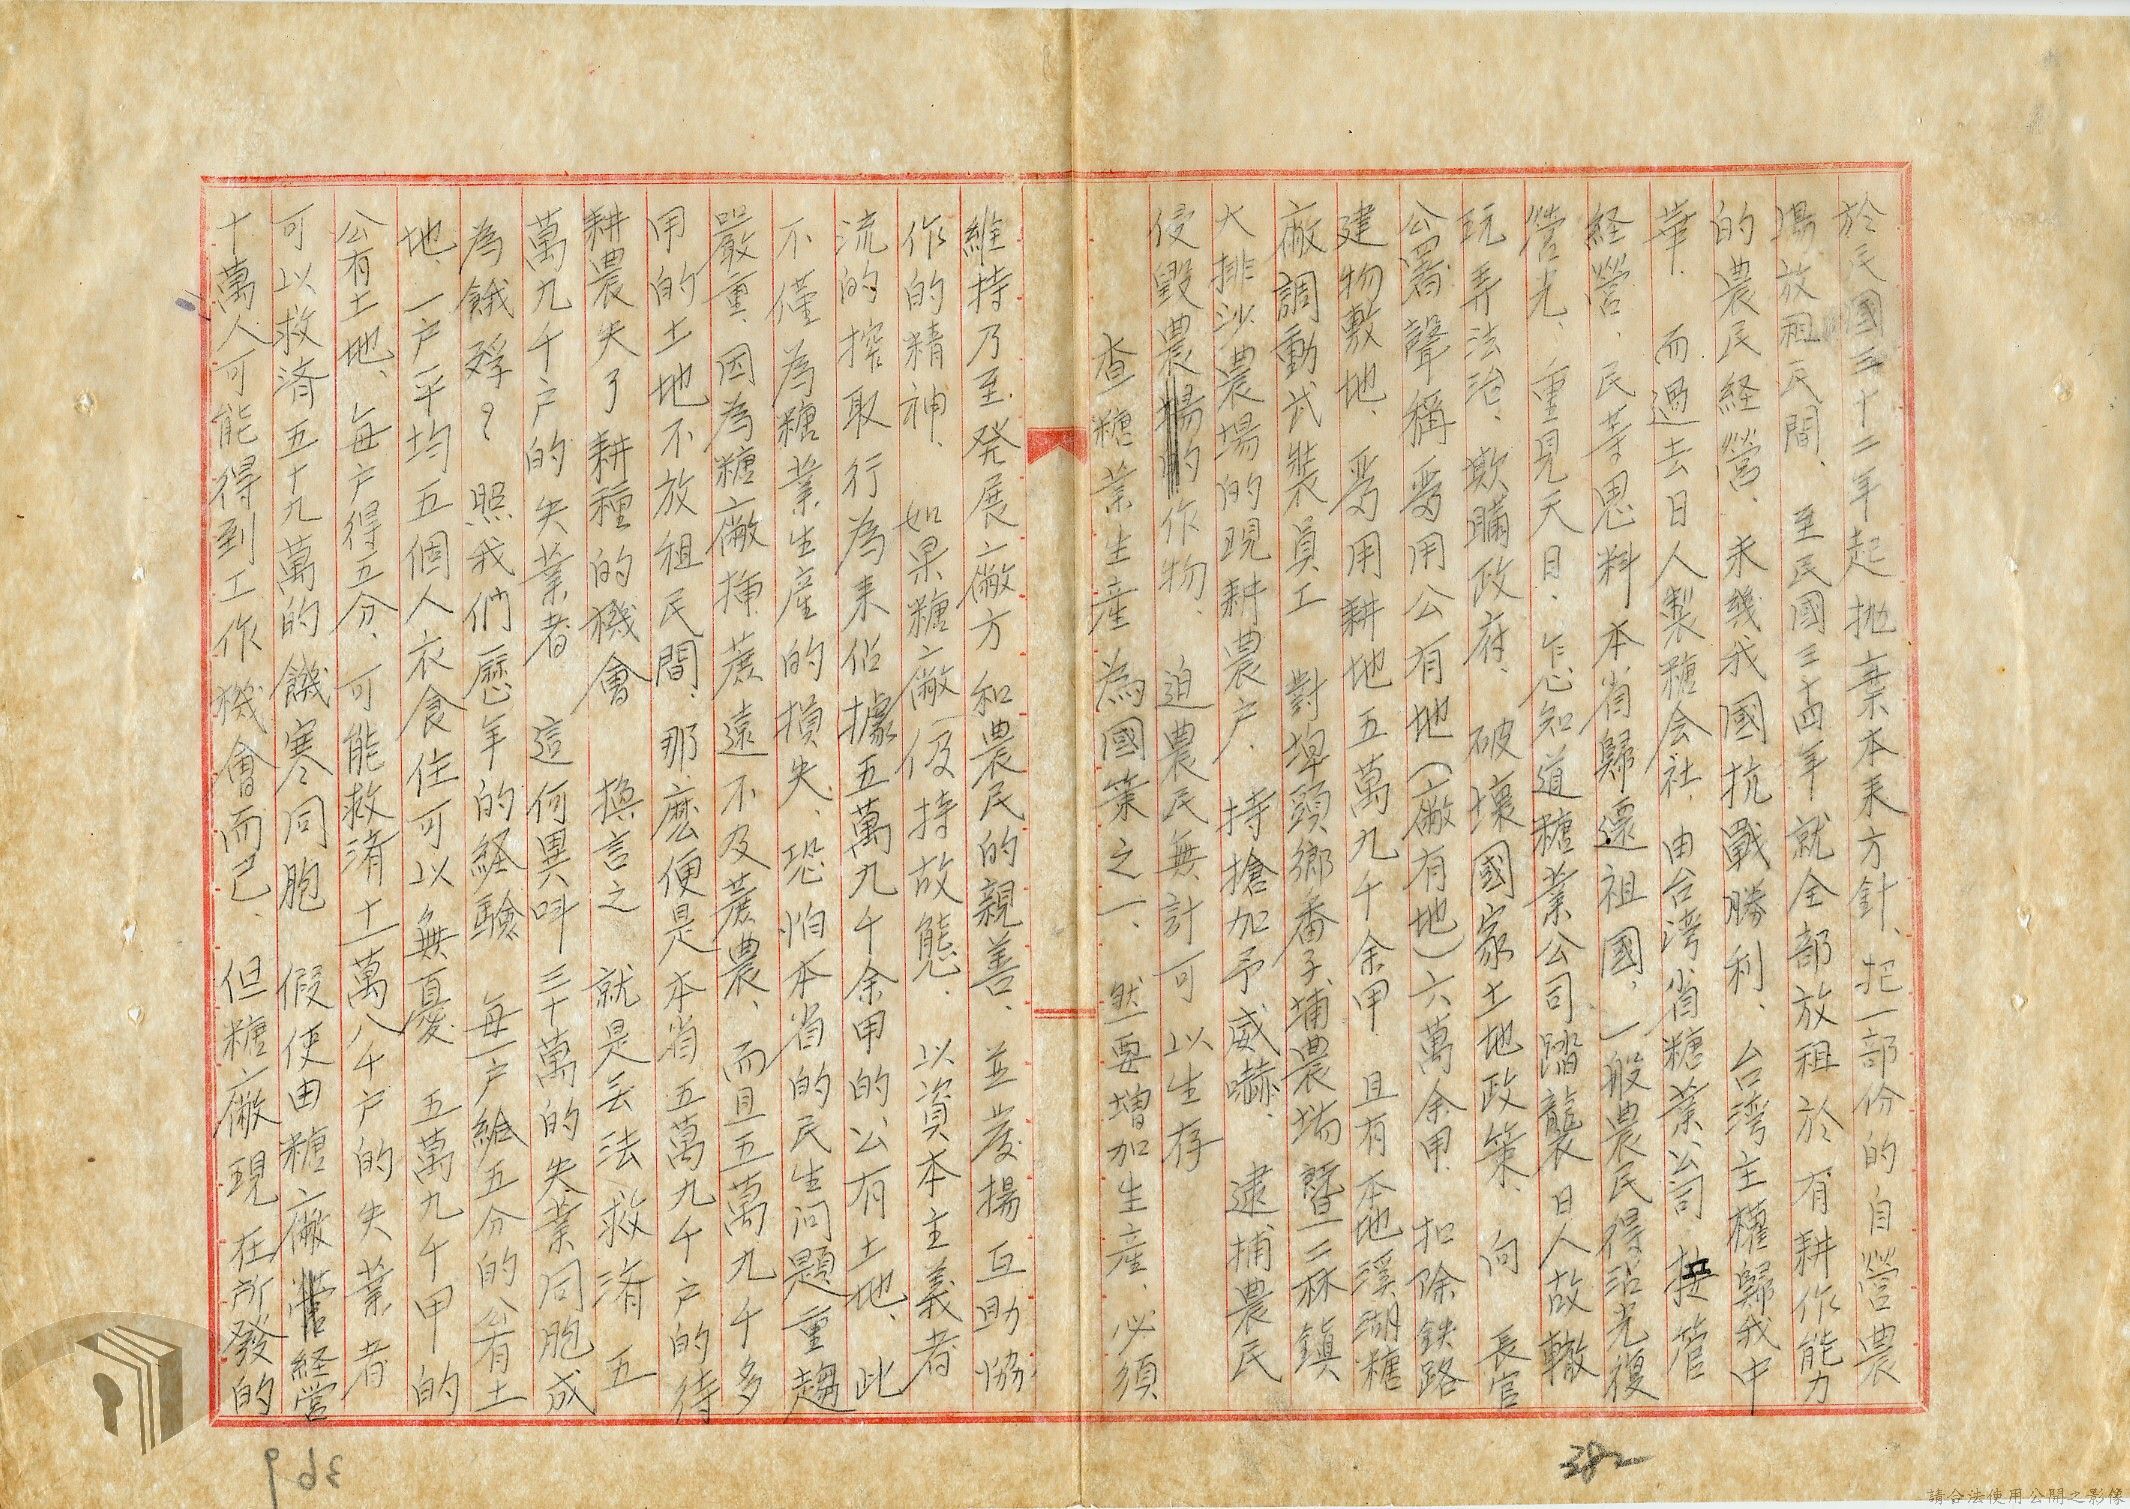 於民國三十二年起拋棄本来方針、把一部份的自營農
場放租民間、至民國三十四年就全部放租於有耕作能力
的農民経營、未幾我國抗戰勝利、台湾主權歸我中
華、而過去日人製糖会社、由台湾省糖業公司接管
経營、民等思料本省歸還祖國、一般農民得沾光復
營光、重見天日、乍忘知道糖業公司踏襲日人故轍
玩弄法治、欺瞞政府、破壞國家土地政策、向長官
公署聲稱要用公有地(廠有地)六萬余甲、扣除鉄路
建物敷地、要用耕地五萬九千余甲、且有本地溪湖糖
廠調動武裝員工對埤頭鄉番子埔農場暨二林鎮
大排沙農場的現耕農户、持槍加予威嚇、逮捕農民
侵毀農的作物、迫農民無計可以生存
查糖業生産為國策之一、然要增加生産、必須
維持乃至発展廠方和農民的親善、並發揚互助協
作的精神、如果糖廠仍持故態、以資本主義者
流的搾取行為来佔據五萬九千余甲的公有土地、此
不僅為糖業生産的損失、恐怕本省的民生问題重趨
嚴重、因為糖廠揷蔗遠不及蔗農、而且五萬九千多
甲的土地不放租民間、那麽便是本省五萬九千户的待
耕農失了耕種的機會換言之就是無法救済五
萬九千户的失業者這何異呌三十萬的失業同胞成
為餓殍?照我們歷年的経驗每一户給五分的公有土
地、一户平均五個人衣食住可以無憂五萬九千甲的
公有土地、每户得五分、可能救済十一萬八千户的失業者
可以救済五十九萬的饑寒同胞假使由糖廠経營
十萬人可能得到工作機會而已、但糖廠現在所發的
369
382
請合法使用公開之影像